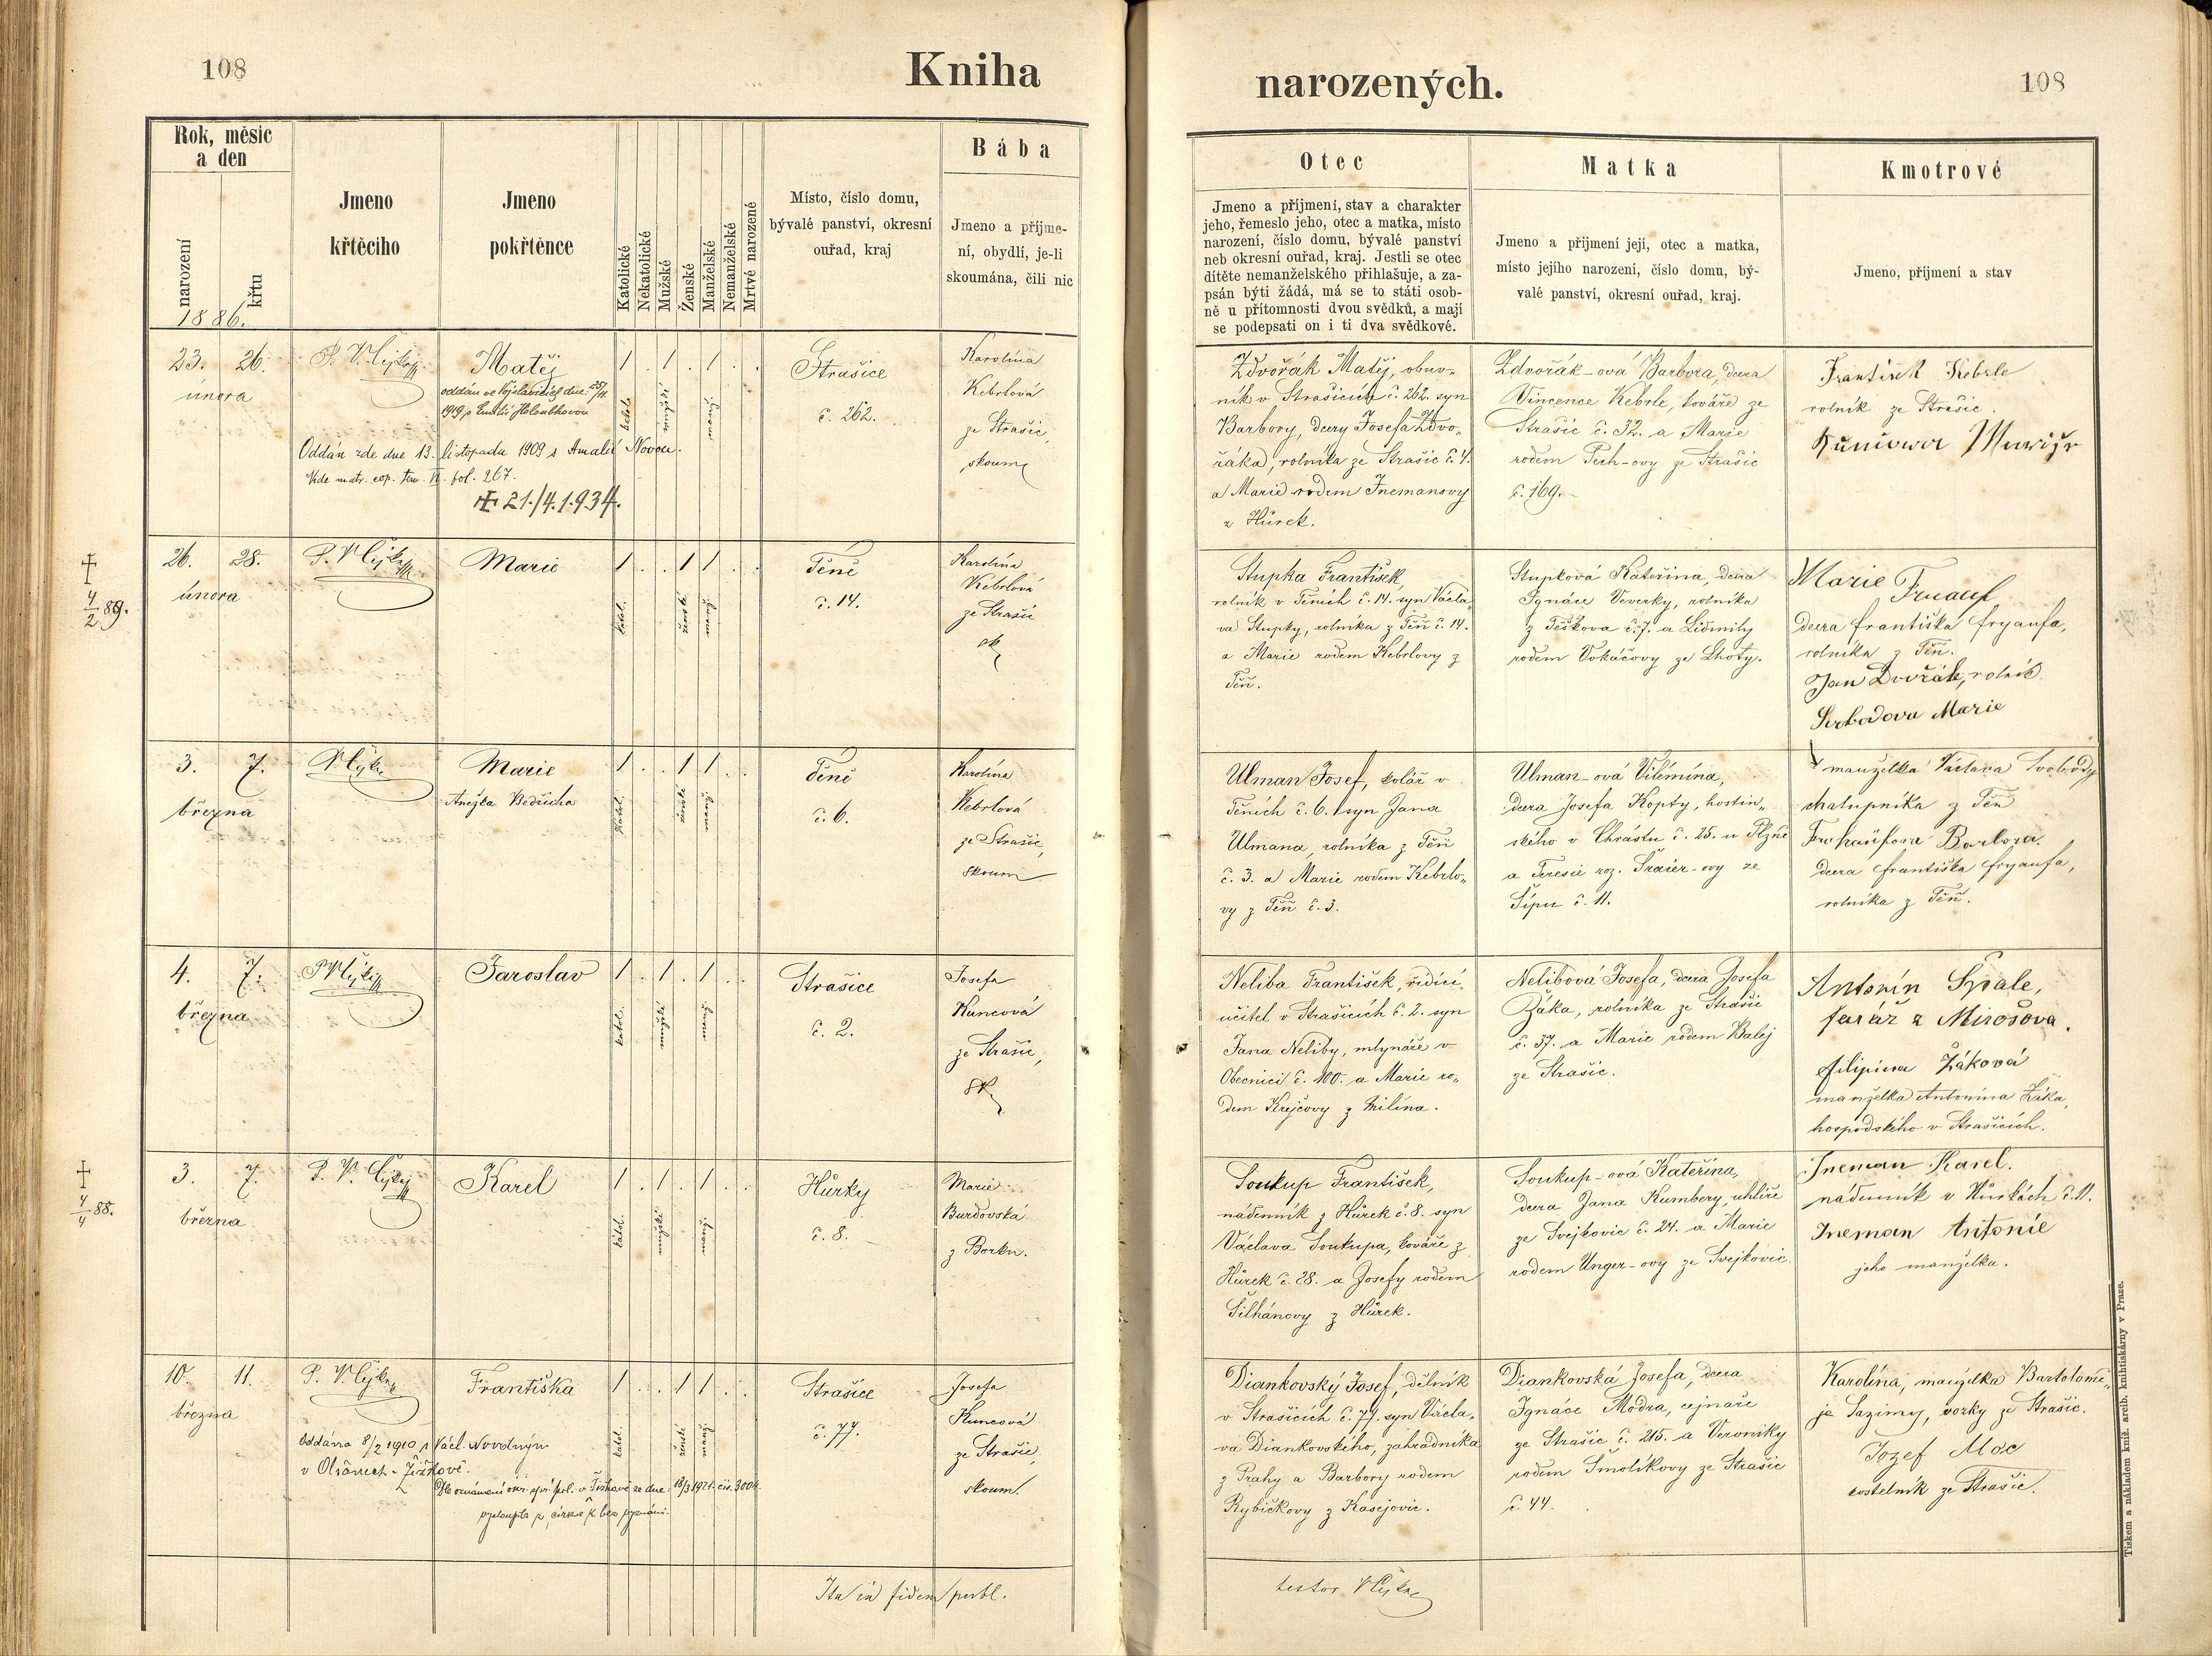 108
Kniha
narozených.
108
Rok, měsíc
a den
narození
křtu
1886.
Jmeno
křtěcího
Jmeno
pokřtěnce
Katolické
Nekatolické
Mužské
Ženské
Manželské
Nemanželské
Mrtvé narozené
Místo, číslo domu,
bývalé panství, okresní
ouřad, kraj
Bába
Jmeno a příjme-
ní, obydlí, je-li
skoumána, čili nic
Otec
Jmeno a příjmení, stav a charakter
jeho, řemeslo jeho, otec a matka, místo
narození, číslo domu, bývalé panství
neb okresní ouřad, kraj. Jestli se otec
dítěte nemanželského přihlašuje, a za-
psán býti žádá, má se to státi osob-
ně u přítomnosti dvou svědků, a mají
se podepsati on i ti dva svědkové.
Matka
Jmeno a příjmení její, otec a matka,
místo jejího narození, číslo domu, bý-
valé panství, okresní ouřad, kraj.
Kmotrové
Jmeno, příjmení a stav
23. 26.
února
Matěj
oddán ve dne 25/11
1919, s Holoubkovou
Oddán zde dne 13. listopadu 1909 s Amalií Novou.
Vide matr. cop. tom. VI. fol. 267.
21./4.1.934.
/ . / . / . .
katol.
mužské
manž.
Strašice
č. 262.
Karolína
Kebrlová
ze Strašic,
skoum.
Zdvořák Matěj, obuv-
ník v Strašicích č. 262. syn
Barbory, dcery Josefa Zdvo-
řáka, rolníka ze Strašic č. 4.
a Marie rodem Inemanovy
z Hůrek.
Zdvořák-ová Barbora, dcera
Vincence Kebrle, kováře ze
Strašic č. 32. a Marie
rodem Pech-ovy ze Strašic
č. 169.
František Kebrle
rolník ze Strašic.
26. 28.
února
4/2 89.
Marie
/ . . / / . .
katol.
ženské
manž.
Těně
č. 14.
Karolína
Kebrlová
ze Strašic
sk.
Stupka František,
rolník v Těních č. 14. syn Václa-
va Stupky, rolníka z Těň č. 14.
a Marie rodem Kebrlovy z
Těň.
Stupková Kateřina, dcera
Ignáce Veverky, rolníka
z Těškova č. 7. a Lidmily
rodem Vokáčovy ze Lhoty.
Marie Fruauf
dcera Františka Fryaufa,
rolníka z Těň.
Jan Dvořák, rolník
Svobodova Marie
manželka Václava Svobody
chalupníka z Těň
3. 7.
března
Marie
Anežka Bedřicha
/ . . / / . .
katol.
ženské
manž.
Těně
č. 6.
Karolína
Kebrlová
ze Strašic,
skoum.
Ulman Josef, kolář v
Těních č. 6. syn Jana
Ulmana, rolníka z Těň
č. 3. a Marie rodem Kebrlo-
vy z Těň č. 3.
Ulman-ová Vilémína,
dcera Josefa Kopty, hostin-
ského v Chrástu č. 25. u Plzně
a Teresie roz. Šraier-ovy ze
Šípu č. 11.
Barbora
dcera Františka Fryaufa,
rolníka z Těň.
4. 7.
března
Jaroslav
/ . / . / . .
katol.
mužské
manž.
Strašice
č. 2.
Josefa
Kuncová
ze Strašic,
sk.
Neliba František, řídící
učitel v Strašicích č. 2. syn
Jana Neliby, mlynáře v
Obecnici č. 100. a Marie ro-
dem Krejčovy z Milína.
Nelibová Josefa, dcera Josefa
Žáka, rolníka ze Strašic
č. 37. a Marie rodem Balej
ze Strašic.
Antonín Špale,
farář z Mirošova.
Filipina Žáková
manželka Antonína Žáka,
hospodského v Strašicích.
3. 7.
března
4/4 88.
Karel
/ . / . / . .
katol.
mužské
manž.
Hůrky
č. 8.
Marie
Burdovská
z Borku.
Soukup František,
nádenník z Hůrek č. 8. syn
Václava Soukupa, kováře z
Hůrek č. 28. a Josefy rodem
Šilhánovy z Hůrek.
Soukup-ová Kateřina,
dcera Jana Kumbery, uhlíře
ze Svejkovic č. 24. a Marie
rodem Unger-ovy ze Svejkovic.
Ineman Karel.
nádenník v Hůrkách č. 11.
Ineman Antonie
jeho manželka.
10. 11.
března
Františka
Oddána 8/2 1910 s Václ. Novotným
v Olšanech - Žižkově.
Dle oznámení okr. spr. pol. v Žižkově ze dne 18/3 1921 čís. 3004
vystoupila z církve k bez vyznání.
/ . . / / . .
katol.
ženské
manž.
Strašice
č. 77.
Josefa
Kuncová
ze Strašic,
skoum.
Diankovský Josef, dělník
v Strašicích č. 77. syn Václa-
va Diankovského, zahradníka
z Prahy a Barbory rodem
Rybičkovy z Kasejovic.
Diankovská Josefa, dcera
Ignáce Modra, cejnaře
ze Strašic č. 215. a Veroniky
rodem Smolíkovy ze Strašic
č. 44.
Karolína, manželka Bartolomě-
je Sazimy, vorky ze Strašic.
Jozef Moc
kostelník ze Strašic.
Ita in fidem publ.
testor
Tiskem a nákladem kníž. arcib. knihtiskárny v Praze.